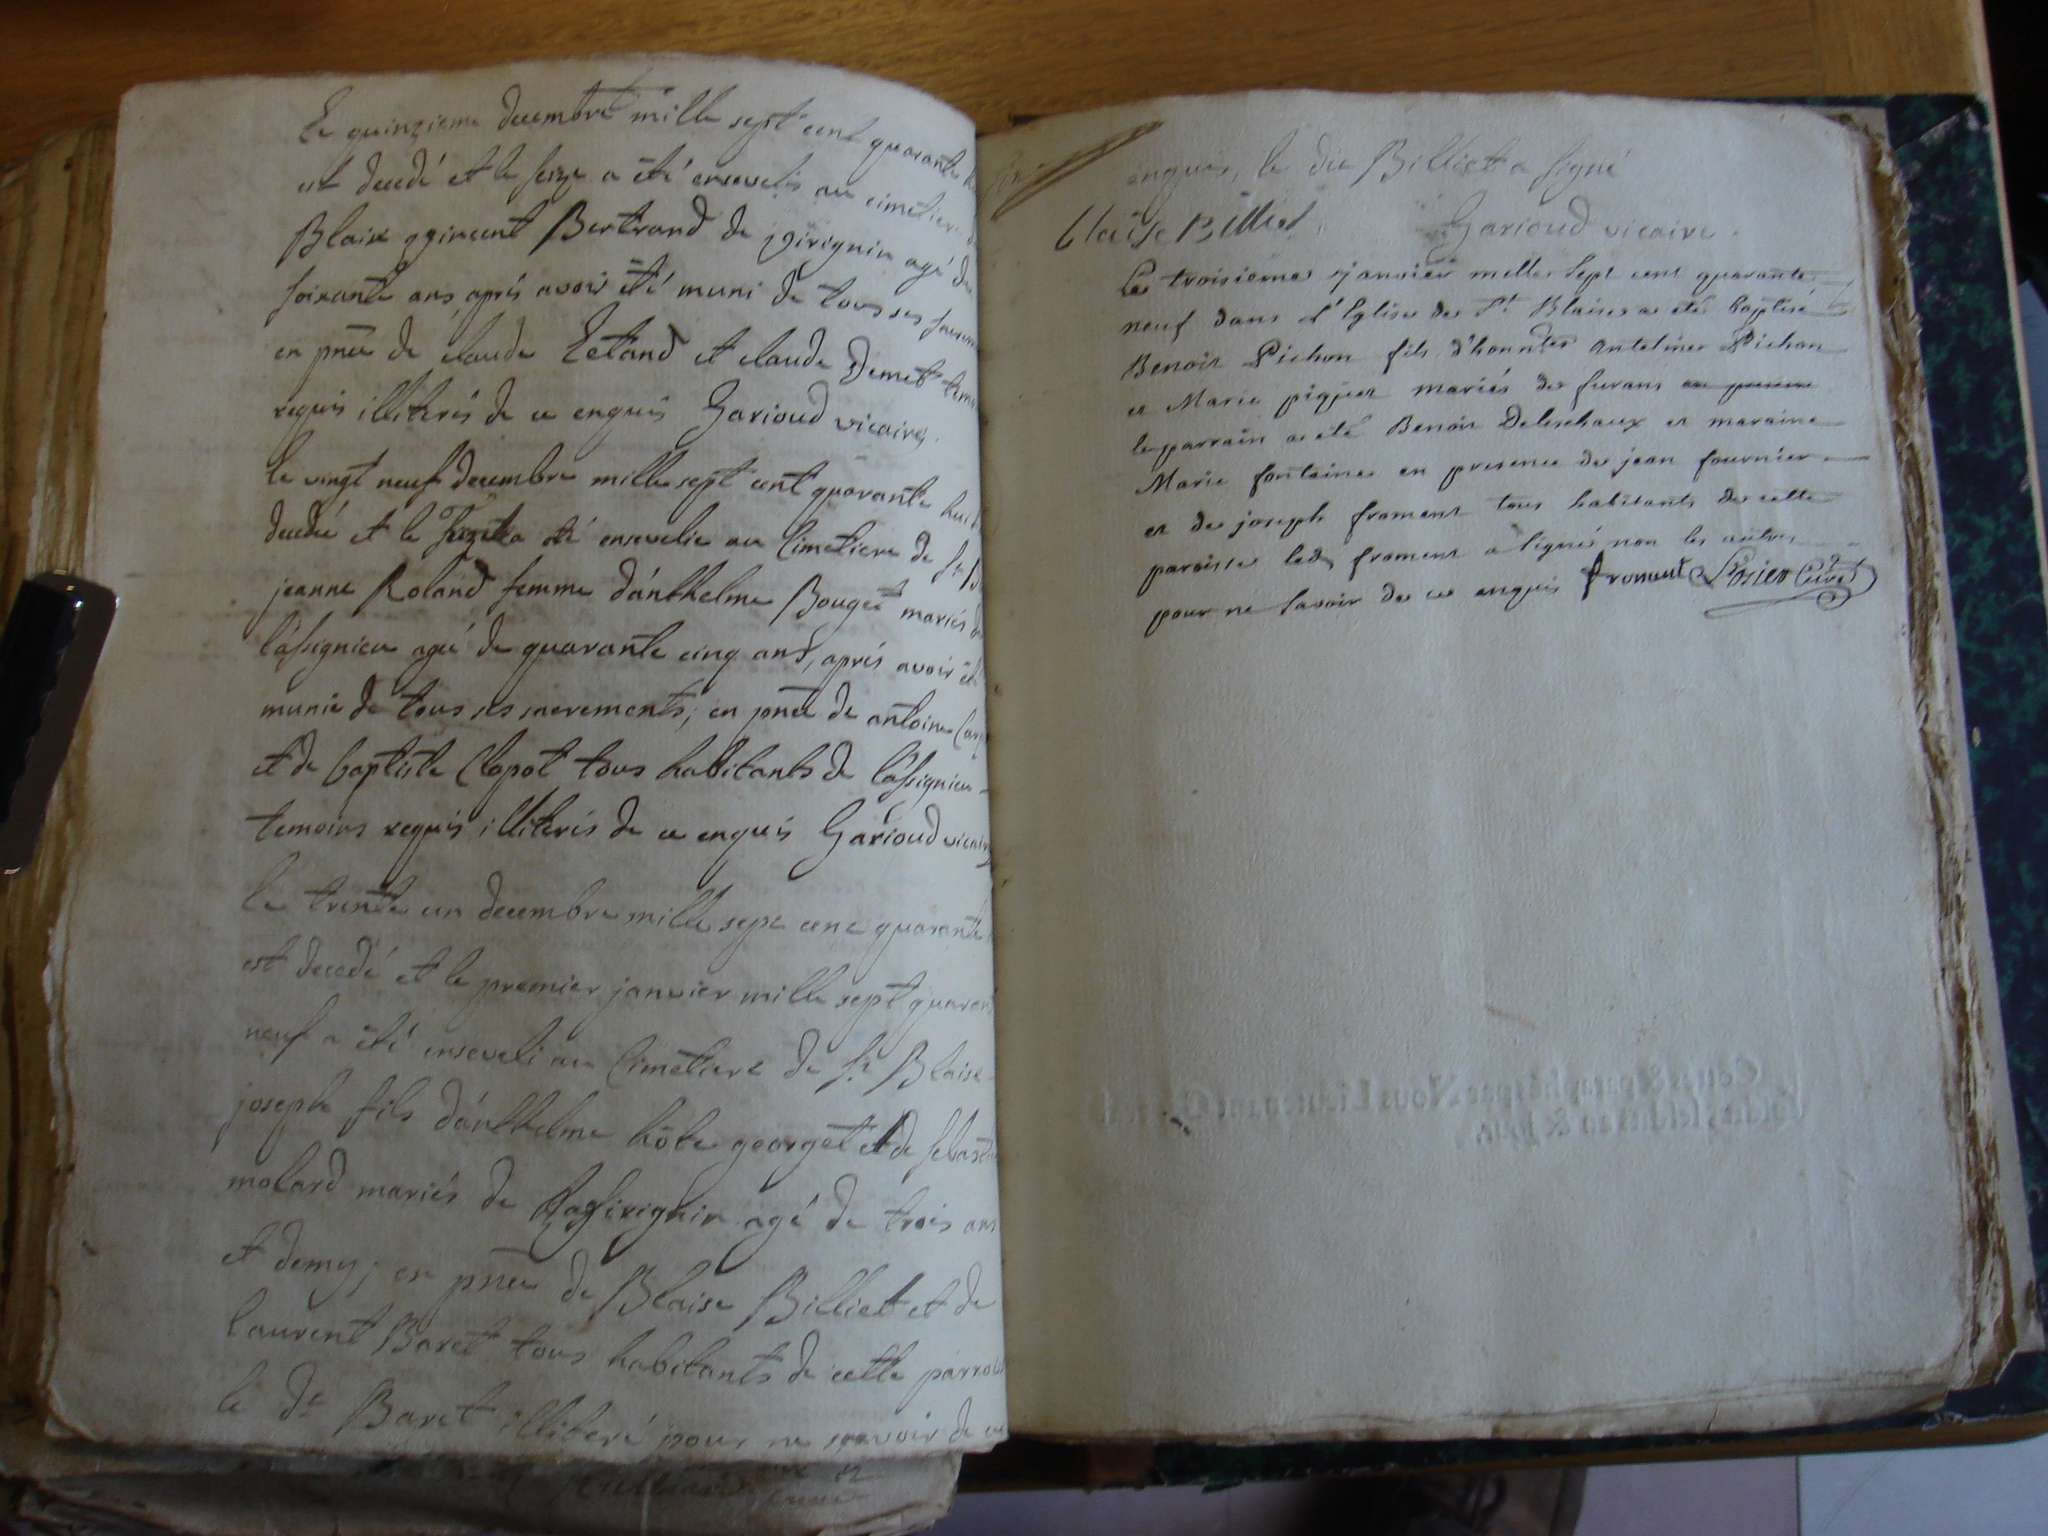 Le quinzieme decembre mille sept cent quarante
est decedé et le seize a été enseveli au cimetiere
Blaise Bertrand de pirignin agé de
soixante ans après avoir été muni de tous ses
en pnce de claude Letand et claude Demet
requis illiterés de ce enquis Garioud vicaire
le vingt neuf decembre mille sept cent quarante huit
decedée et le a été ensevelie au Cimetiere de st
jeanne Roland femme d'anthelme Bouget mariés
l'assignieu agé de quarante cinq ans, après avoir été
munie de tous ses sacrements; en pnce de antoine
et de baptiste Clapot tous habitants de l'assignieu
temoins requis illiterés de ce enquis Garioud vicaire
le trente un decembre mille sept cent quarante
est decedé et le premier janvier mille sept quarante
neuf a été enseveli au Cimetiere de st Blaise
joseph fils d'anthelme hôte georget et de
molard mariés de agé de trois ans
et demy; en pnce de Blaise Billiet et de
laurent Baret tous habitants de cette parroisse
le dt Baret illiteré pour ne scavoir de ce
enquis, le dit Billiet a signé
blaise Billiet Garioud vicaire
Le troisieme janvier mille sept cent quarante
neuf dans l'Eglise de St Blaise a eté baptisé
Benoit Pichon fils d'honntes antelme Pichon
et Marie piquet mariés de furans
le parrain a eté Benoit Delesehaux et maraine
Marie fontaine en presence de jean fournier
et de joseph froment tous habitants de cette
paroisse led froment a signé non les autres
pour ne savoir de ce enquis froment Curé
Cotté & paraphé par Nous Lieutenant